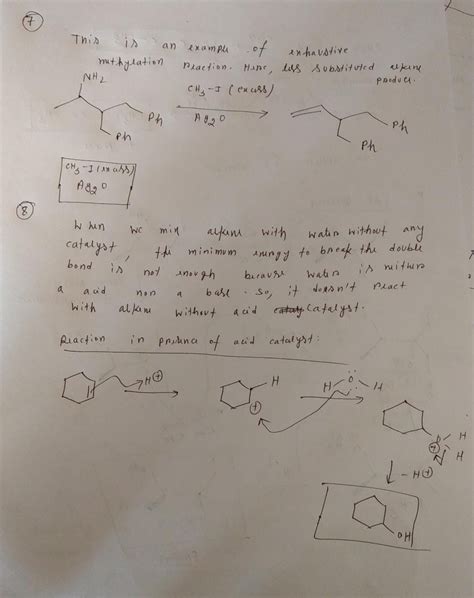 7
This is an example of exhaustive
methylation reaction. Here, less substituted alkene
produce.
NH2
CH3-I (excess)
Ag2O
Ph
Ph
Ph
Ph
CH3-I (excess)
Ag2O
8
When we mix alkene with water without any
catalyst, the minimum energy to break the double
bond is not enough because water is neither
a acid non a base. So, it doesn't react
with alkene without acid cataly Catalyst.
Reaction in presence of acid catalyst:
H⊕
H
⊕
H O H
O H
⊕ H
- H⊕
OH